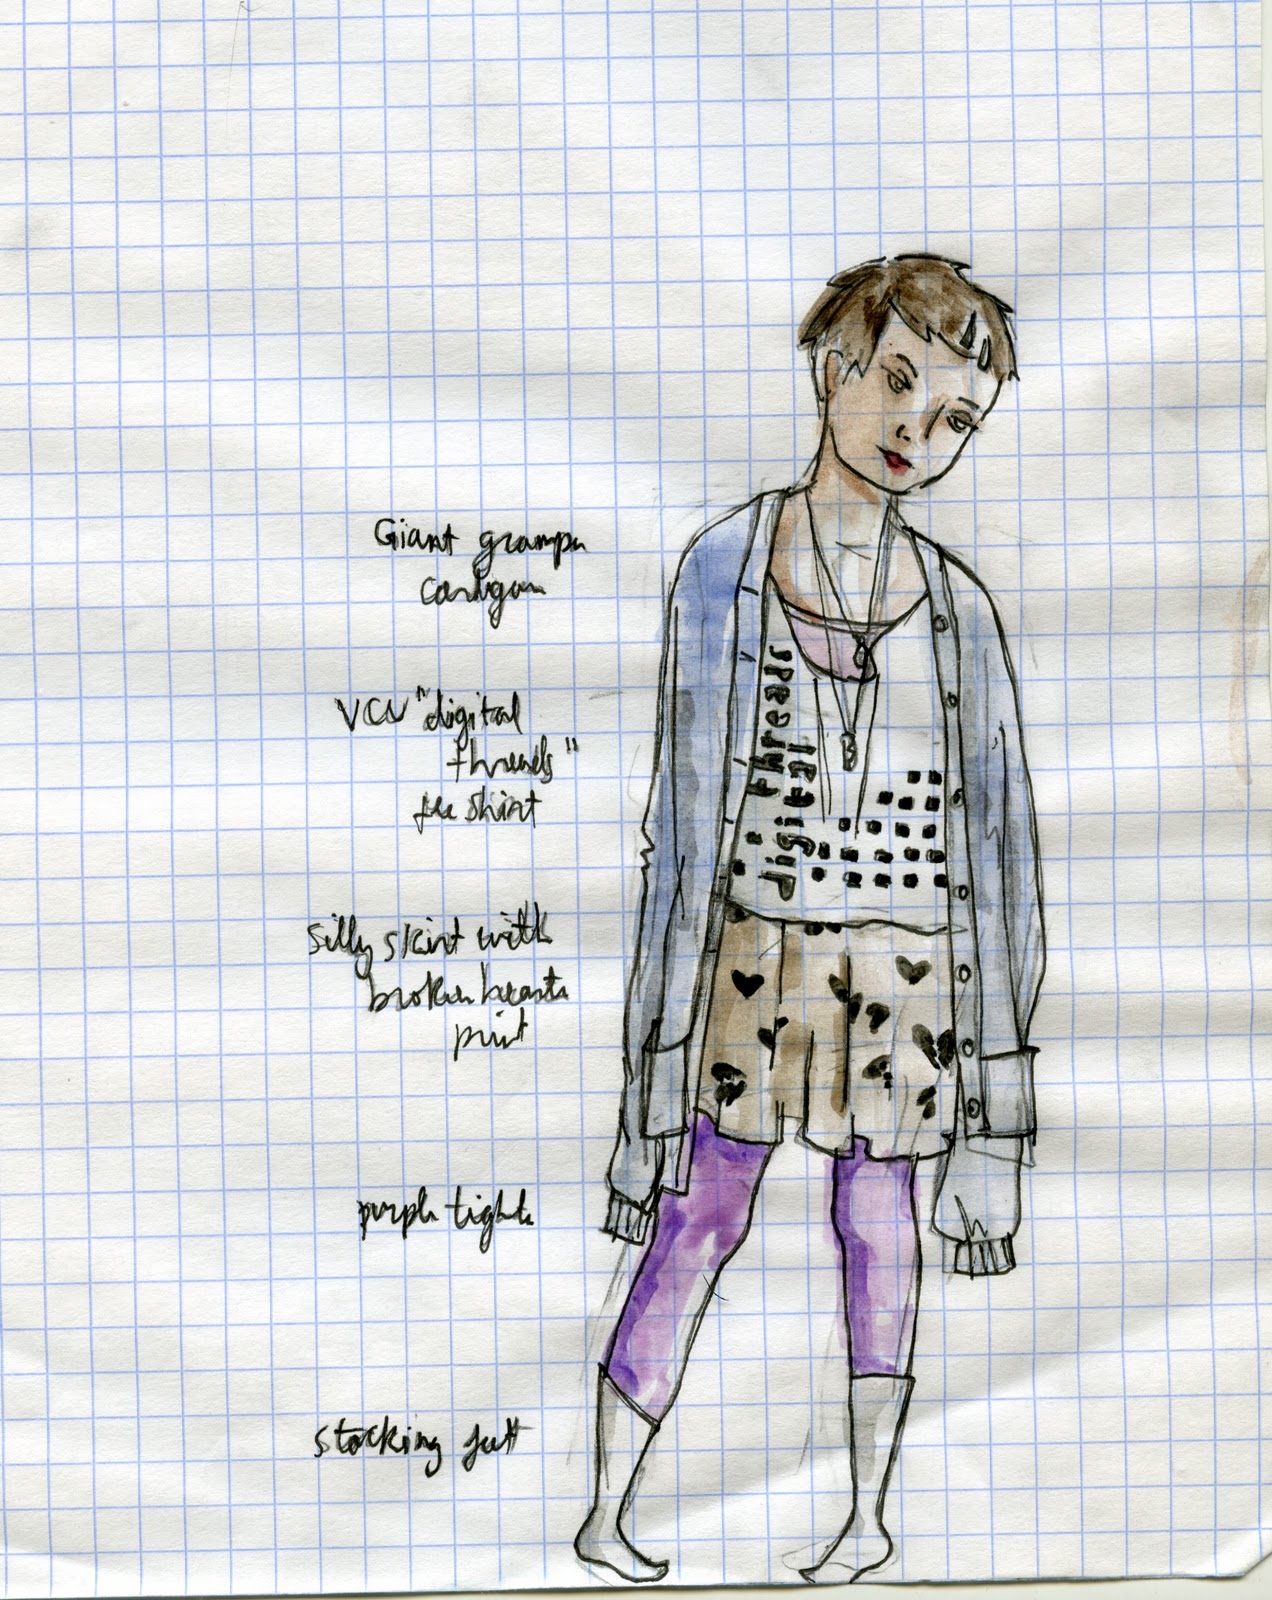 Giant grampa
cardigan
VCU "digital
threads"
tee shirt
silly skirt with
broken hearts
print
purple tights
stocking feet
digital
threads